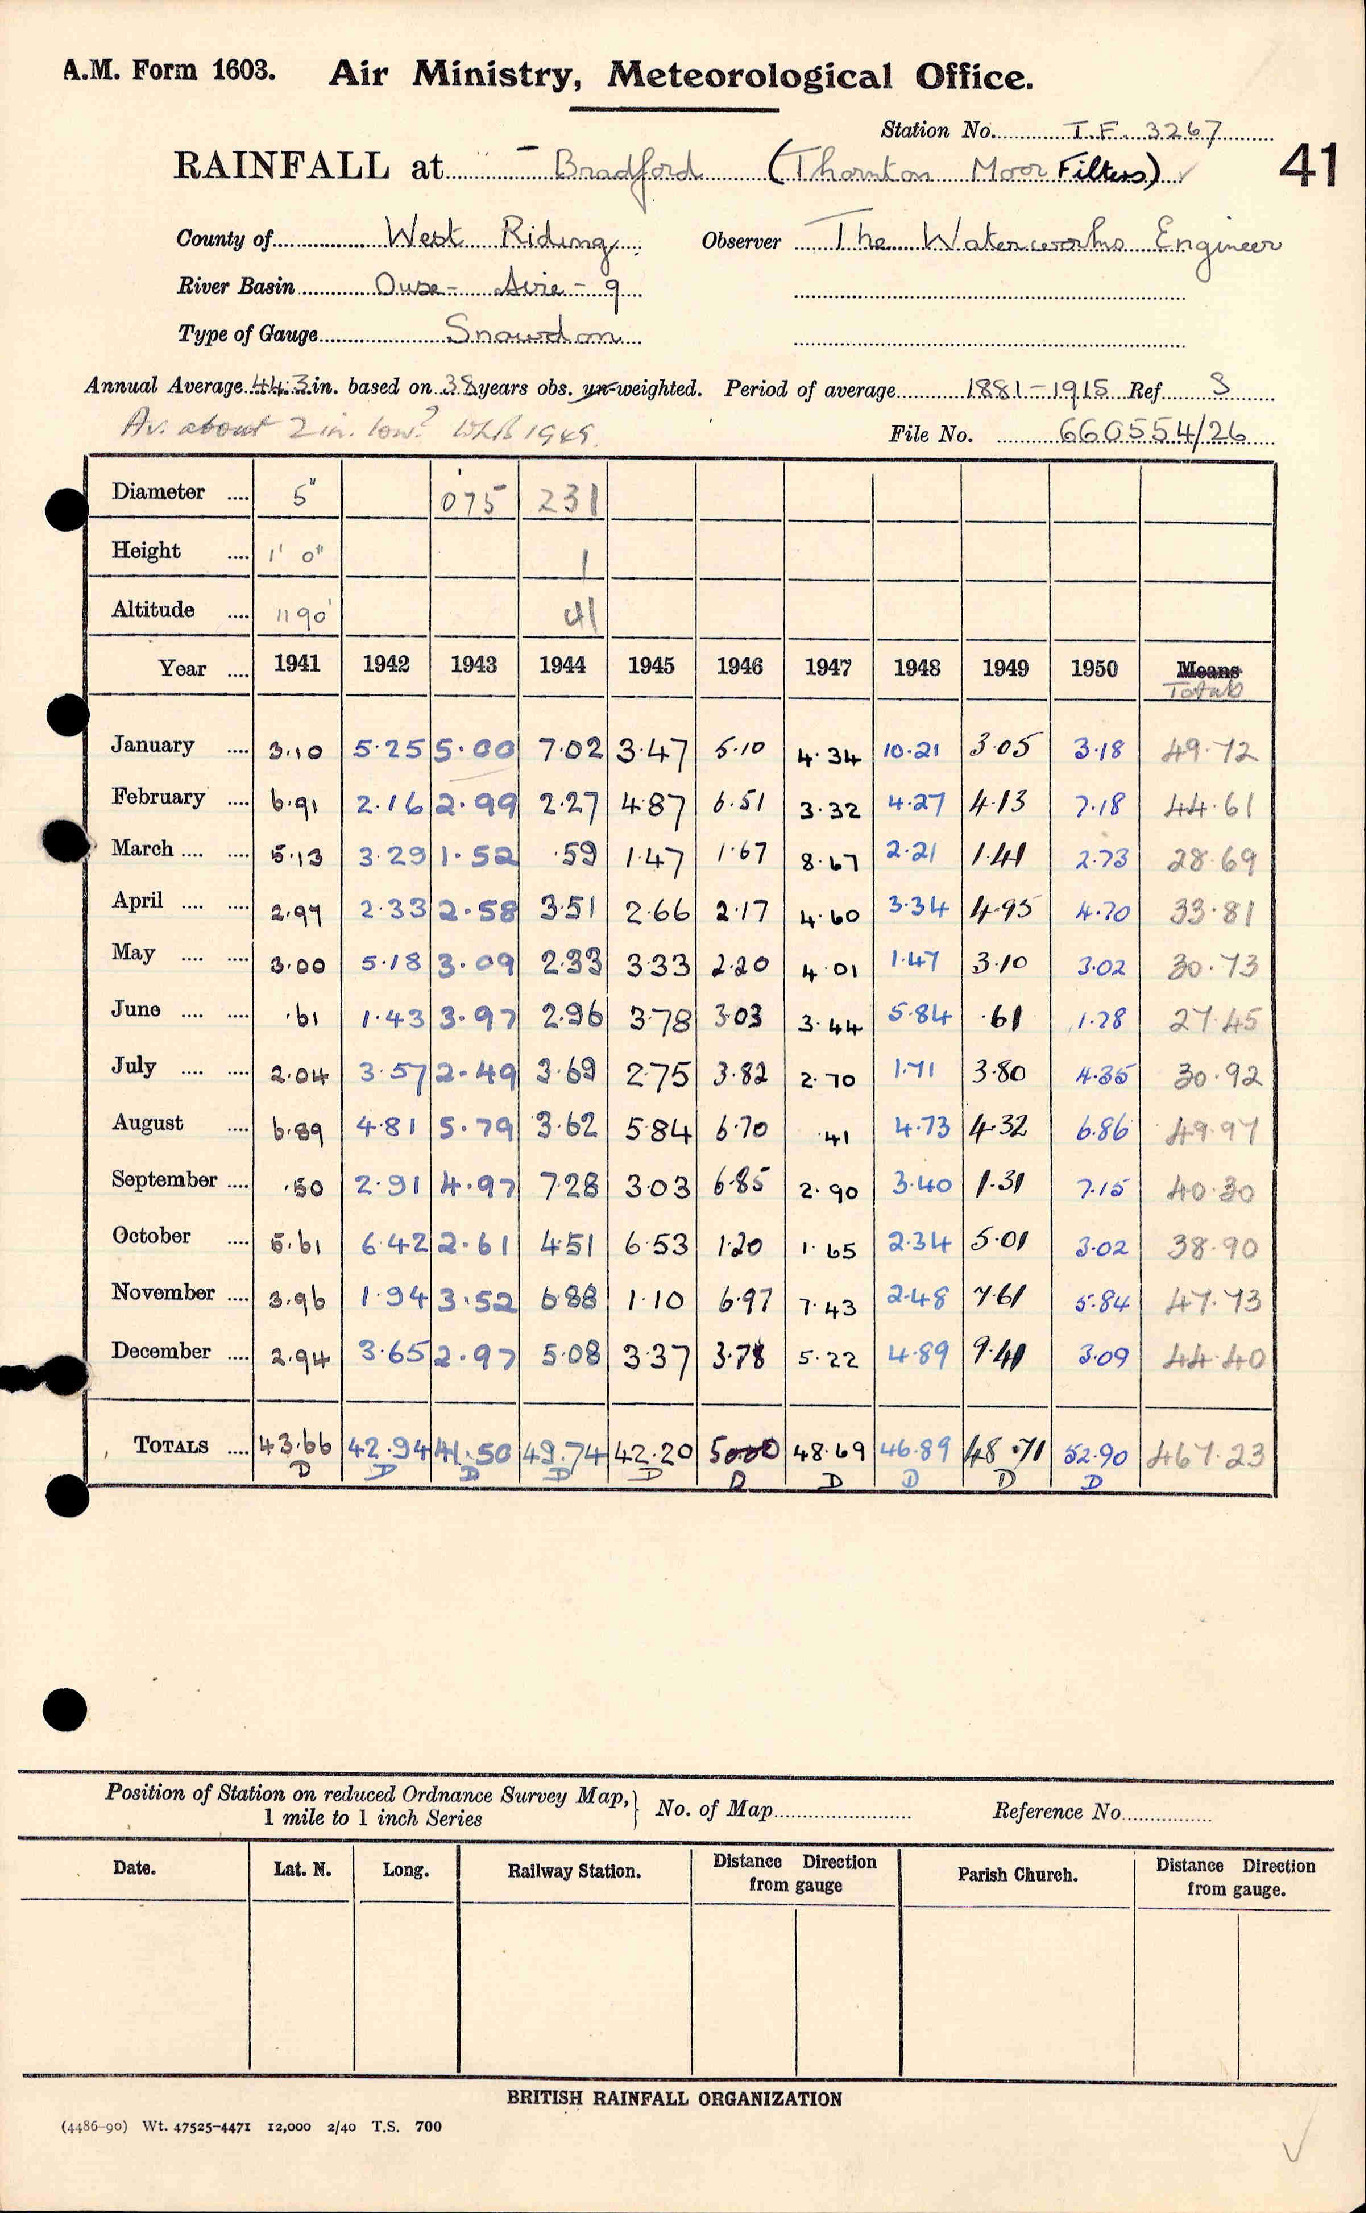 A.M. Form 1603. Air Ministry, Meteorological Office.
Station No. T.F. 3267
RAINFALL at Bradford (Thornton Moor Filters) 41
County of West Riding Observer The Waterworks Engineer
River Basin Ouse - Aire - 9
Type of Gauge Snowdon
Annual Average 44.3 in. based on 38 years obs. un-weighted. Period of average 1881-1915 Ref S
Av. about 2 in. low? 1949. File No. 660554/26
Diameter .... 5" 075 231
Height .... 1' 0" 1
Altitude .... 1190' 41
Year .... 1941 1942 1943 1944 1945 1946 1947 1948 1949 1950 Means Totals
January .... 3.10 5.25 5.00 7.02 3.47 5.10 4.34 10.21 3.05 3.18 49.72
February .... 6.91 2.16 2.99 2.27 4.87 6.51 3.32 4.27 4.13 7.18 44.61
March .... .... 5.13 3.29 1.52 .59 1.47 1.67 8.67 2.21 1.41 2.73 28.69
April .... .... 2.97 2.33 2.58 3.51 2.66 2.17 4.60 3.34 4.95 4.70 33.81
May .... .... 3.00 5.18 3.09 2.33 3.33 2.20 4.01 1.47 3.10 3.02 30.73
June .... .... .61 1.43 3.97 2.96 3.78 3.03 3.44 5.84 .61 1.78 27.45
July .... .... 2.04 3.57 2.49 3.69 2.75 3.82 2.70 1.71 3.80 4.35 30.92
August .... 6.89 4.81 5.79 3.62 5.84 6.70 .41 4.73 4.32 6.86 49.97
September .... .50 2.91 4.97 7.28 3.03 6.85 2.90 3.40 1.31 7.15 40.30
October .... 5.61 6.42 2.61 4.51 6.53 1.20 1.65 2.34 5.01 3.02 38.90
November .... 3.96 1.94 3.52 6.88 1.10 6.97 7.43 2.48 7.61 5.84 47.73
December .... 2.94 3.65 2.97 5.08 3.37 3.78 5.22 4.89 9.41 3.09 44.40
TOTALS .... 43.66 42.94 41.50 49.74 42.20 50.00 48.69 46.89 48.71 52.90 467.23
D D D D D D D D D D
Position of Station on reduced Ordnance Survey Map,
1 mile to 1 inch Series } No. of Map Reference No.
Date. Lat. N. Long. Railway Station. Distance Direction from gauge Parish Church. Distance Direction from gauge.
BRITISH RAINFALL ORGANIZATION
(4486-90) Wt. 47525-4471 12,000 2/40 T.S. 700